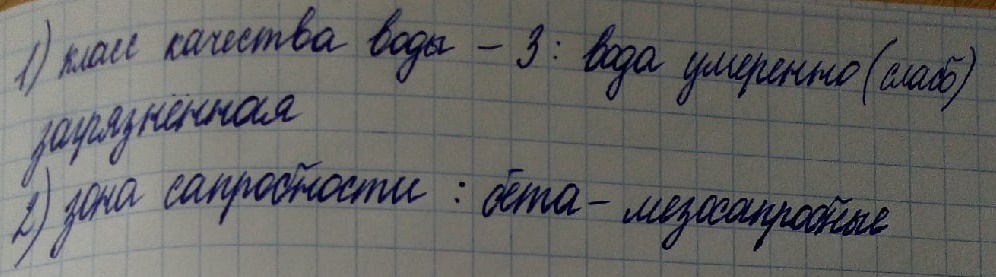 1) класс качества воды – 3: вода умеренно (слабо)
загрязнённая
2) зона сапробности: бета – мезосапробные